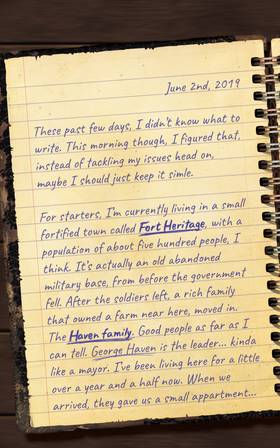 June 2nd, 2019
These past few days, I didn't know what to
write. This morning though, I figured that,
instead of tackling my issues head on,
maybe I should just keep it simle.
For starters, I'm currently living in a small
fortified town called Fort Heritage, with a
population of about five hundred people, I
think. It's actually an old abandoned
military base, from before the government
fell. After the soldiers left, a rich family
that owned a farm near here, moved in.
The Haven family. Good people as far as I
can tell. George Haven is the leader... kinda
like a mayor. I've been living here for a little
over a year and a half now. When we
arrived, they gave us a small appartment...